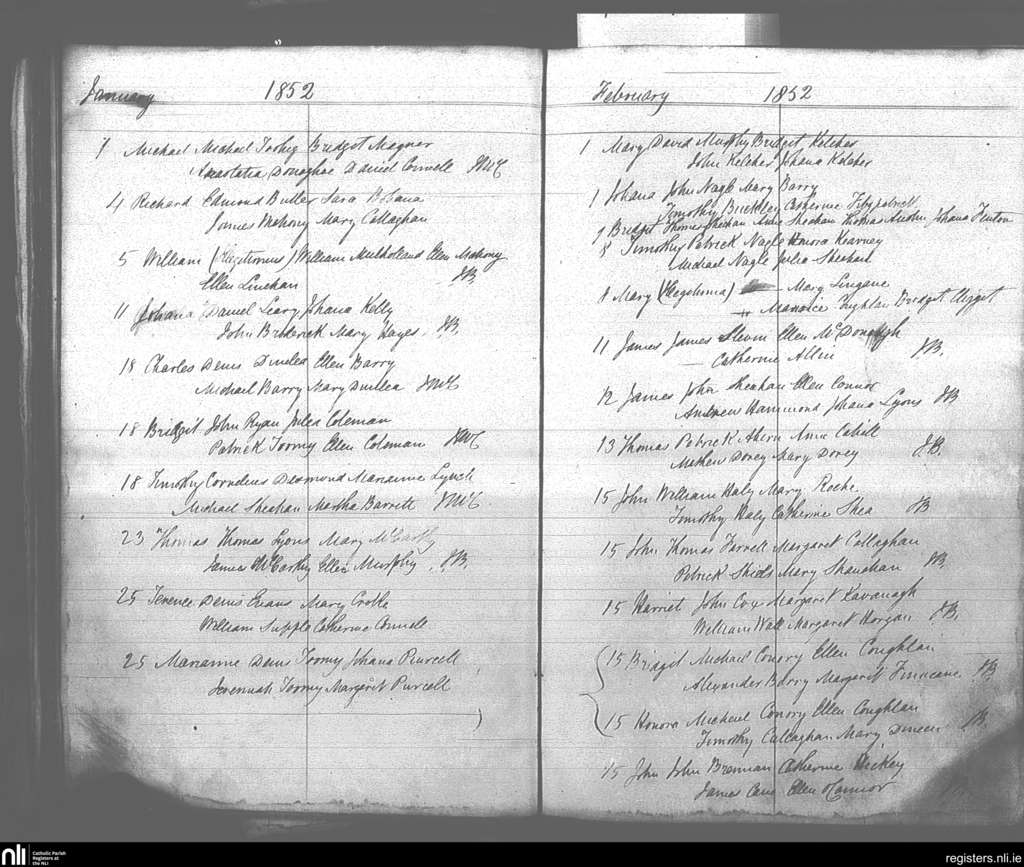 January 1852
7 Michael Michael Toohig Bridget Magner
Anastatia Donaghae Daniel Connell JMcC
4 Richard Edmond Butler Sara
James Mahony Mary Callaghan
5 William William Mulholland Ellen Mahony
Ellen Linehan JB.
11 Johana Daniel Leary Johana Kelly
John Broderick Mary Hayes. JB.
18 Charles Denis Ellen Barry
Michael Barry Mary JMcC
18 Bridget John Ryan Julea Coleman
Patrick Toomy Ellen Coleman JMcC
18 Timothy Cornelius Desmond Marianne Lynch
Michael Sheahan Martha Barrett JMcC
23 Thomas Thomas Lyons Mary McCarthy
James McCarthy Ellen Murphy. JB.
25 Terence Denis Evans Mary Crofte
William Supple Catherine Connell
25 Marianne Denis Toomy Johana Purcell
Jeremiah Toomy Margaret Purcell
February 1852
1 Mary David Murphy Bridget Keleher
John Keleher Johana Keleher
1 Johana John Nagle Mary Barry
Timothy Buckley Catherine Fitzpatrick
9 Bridget Thomas Sheehan Anne Sheehan Thomas Johana Fenton
8 Timothy Patrick Nagle Honora Kearney
Michael Nagle Julia Sheehan
8 Mary Mary Lingane
Maurice Bridget
11 James James Slevin Ellen McDonough
Catherine Allen JB.
12 James John Sheahan Ellen Connor
Andrew Hammond Johana Lyons JB
13 Thomas Patrick Ahern Anne Cahill
Mathew Dorey Mary Dorey J.B.
15 John William Haly Mary Roche
Timothy Haly Catherine Shea JB
15 John Thomas Farrell Margaret Callaghan
Patrick Mary Shanahan JB.
15 Harriet John Cox Margaret Kavanagh
William Wall Margaret Horgan JB.
15 Bridgit Michael Conory Ellen Coughlan
Alexander Barry Margaret Finucane JB.
15 Honora Michael Conory Ellen Coughlan
Timothy Callaghan Mary Dineen JB.
15 John John Brennan Catherine Hickey
James Cane Ellen O'Connor
nli Catholic Parish
Registers at
the NLI
registers.nli.ie